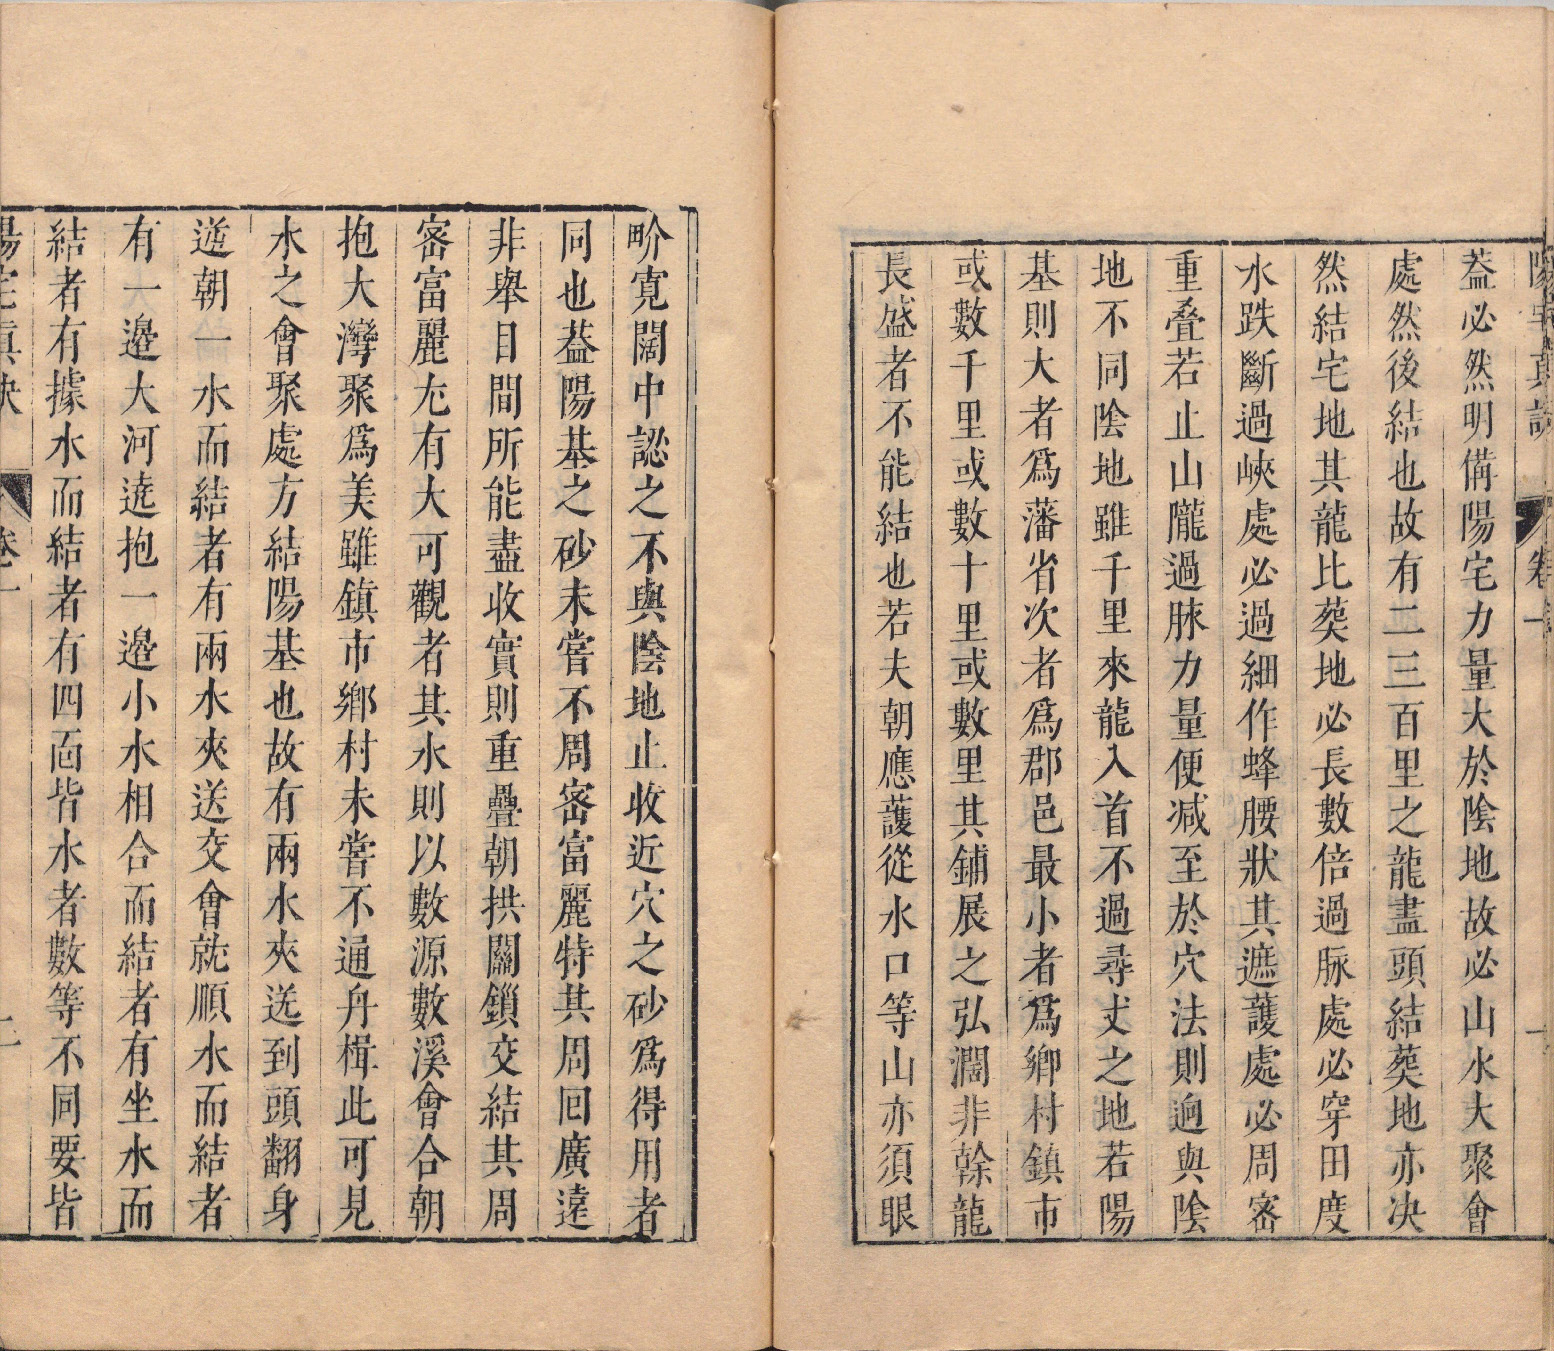 陽宅真訣 卷一
葢必然明備陽宅力量大於陰地故必山水大聚會
處然後結也故有二三百里之龍盡頭結葬地亦决
然結宅地其龍比葬地必長數倍過脉處必穿田度
水跌斷過峽處必過細作蜂腰狀其遮護處必周密
重叠若止山隴過脉力量便减至於穴法則逈與陰
地不同陰地雖千里來龍入首不過尋丈之地若陽
基則大者爲藩省次者爲郡邑最小者爲鄉村鎮市
或數千里或數十里或數里其鋪展之弘濶非榦龍
長盛者不能結也若夫朝應護從水口等山亦須眼
畍寛闊中認之不與陰地止收近穴之砂爲得用者
同也葢陽基之砂未嘗不周密富麗特其周回廣逹
非舉目間所能盡收實則重疊朝拱關鎖交結其周
密富麗尤有大可觀者其水則以數源數溪會合朝
抱大灣聚爲美雖鎮市鄉村未嘗不通舟楫此可見
水之會聚處方結陽基也故有兩水夾送到頭翻身
逆朝一水而結者有兩水夾送交會就順水而結者
有一邉大河遶抱一邉小水相合而結者有坐水而
結者有據水而結者有四面皆水者數等不同要皆
陽宅真訣 卷一 二